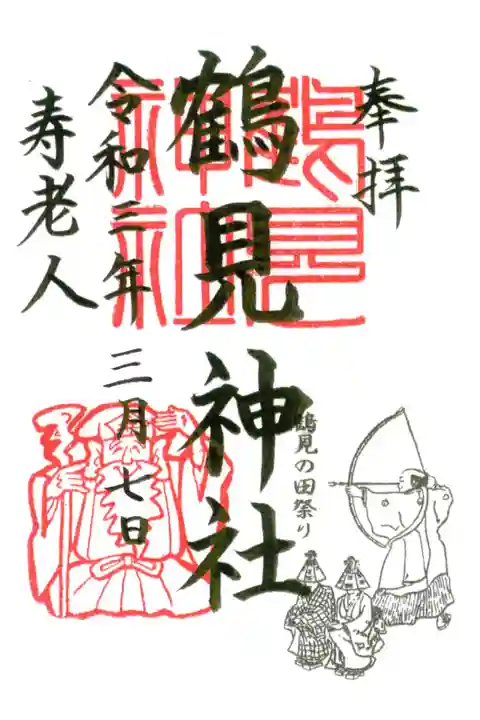 奉拝
鶴見神社
鶴見の田祭り
令和三年三月七日
寿老人